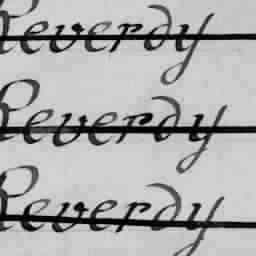 Reverdy
Reverdy
Reverdy